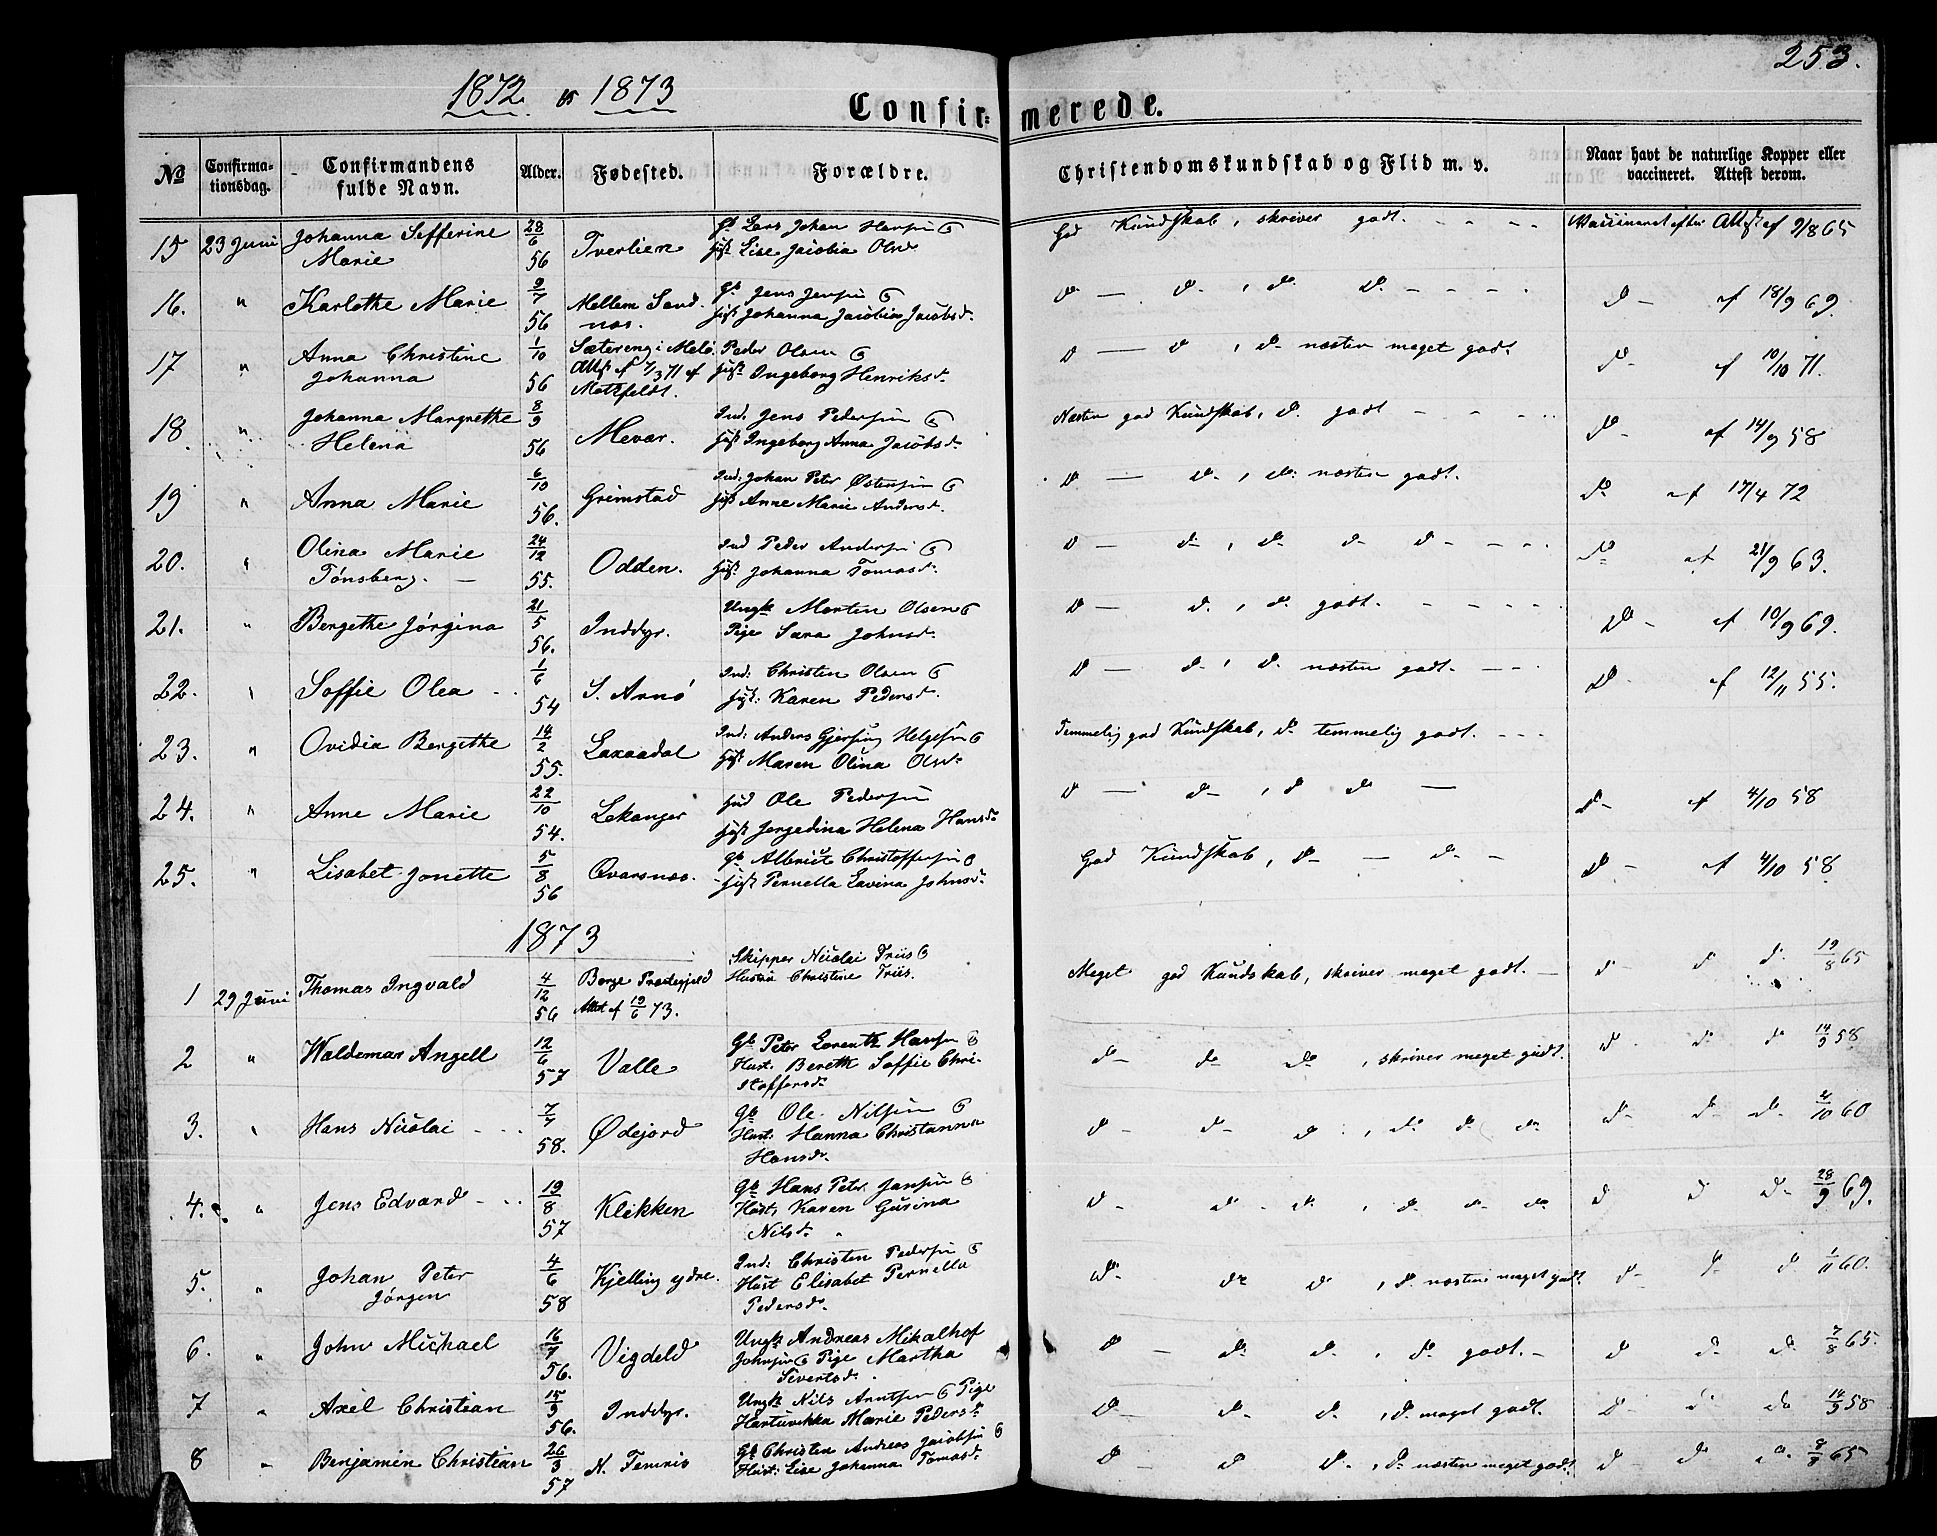 253.
1872 & 1873
Confirmerede.
№ Confirmationsdag. Confirmandens fulde Navn. Alder. Fødested. Forældre. Christendomskundskab og Flid m. v. Naar havt de naturlige Kopper eller vaccineret. Attest derom.
15 23 Juni Johanna Sefferine Marie 28/6 56 Tverlien Gb Lars Johan Hansen & Hust Lise Jacobia Olsd. God Kundskab, skriver godt. - - - - Vaccineret efter Att. af 9/8 65
16. " Karlothe Marie 9/7 56 Mellem Sandnæs. Gb. Jens Jensen & Hust Johanna Jacobia Jacobsd. Do — Do , Do Do - - - - Do - af 18/9 69.
17 " Anna Christine Johanna 1/10 56 Sætereng i Melø. Att. af 7/3 71 af Motzfeldt. Peder Olsen & Hust Ingeborg Henriksd. Do — Do , Do næsten meget godt. Do - af 10/10 71.
18 " Johanna Margrethe Helena 8/9 56 Mevær. Ind. Jens Pedersen & Hust Ingeborg Anna Jacobsd. Næsten god Kundskab, Do godt - - - Do - af 14/9 58
19 " Anna Marie 6/10 56. Grimstad Ind. Johan Peter Østensen & Hust Anne Marie Andersd. Do — Do , Do næsten godt. Do af 17/4 72
20. " Olina Marie Tønsberg. — 24/12 55. Odden. Ind Peder Andersen & Hust. Johanna Tomasd. Do — Do , Do Do Do - - - Do af 21/9 63.
21. " Bergethe Jørgina 21/5 56. Inddyr. Ungk Morten Olsen & Pige Sara Johnsd. Do — Do , Do godt. - - - - Do - af 10/9 69.
22. " Soffie Olea - - 1/6 54 S. Arnø Ind: Christen Olsen & Hust: Karen Pedersd. Do — Do , Do næsten godt. - - - Do - af 12/11 55.
23. " Ovidia Bergethe 14/2 55. Laxaadal Ind: Anders Gjersing Helgesen & Hust Maren Olina Olsd. Temmelig god Kundskab, Do temmelig godt. - - -
24. " Anne Marie 22/10 54. Lekanger Ind Ole Pedersen Hust Jergedina Helena Hansd. Do — Do , Do Do — Do - af 4/10 58
25. " Lisabet Jonette 5/8 56 Qvarsnæs. Gb Albrigt Christoffersen & Hust Pernella Lavina Johnsd. God Kundskab, Do — Do - Do - af 4/10 58.
1873
1 29 Juni Thomas Ingvald 4/12 56 Borge Præstegjeld Attest af 19/6 73. Skipper Nicolai Friis & Hustru Christine Friis. Meget god Kundskab, skriver meget godt. — Do Do Do 19/8 65
2 " Waldemar Angell 12/6 57 Valle Gb Peter Lorentz Hansen & Hust. Bereth Soffie Christoffersd. Do - Do Do , skriver meget godt. Do Do Do 14/9 58
3. " Hans Nicolai - - - 7/7 58. Ødejord Gb Ole Nilsen & Hust. Hanna Christanna Hansd. Do - Do Do , Do Do Do Do Do Do 4/10 60
4. " Jens Edvard - - - 19/8 57 Klikken Gb Hans Peter Jansen & Hust. Karen Gurina Nilsd. Do - Do Do , Do Do Do Do Do Do 28/9 69.
5. " Johan Peter Jørgen 4/6 58 Kjelling ydre. Ind. Christen Pedersen & Hust Elisabet Pernella Pedersd. Do Do Do , Do næsten meget godt. Do Do Do 1/11 60.
6. " John Michael 16/7 56. Vigdeld Ungk Andreas Mikal Johnsen & Pige Martha Sivertsd. Do - Do Do , Do godt. - Do Do Do 7/8 65.
7 " Axel Christian 15/9 56. Inddyr. Ungk Nils Arntsen & Pige Hartvikka Marie Pedersd. Do Do Do , Do meget godt. Do Do Do 14/9 58
8 " Benjamin Christian 26/3 57 N. Femris Gb Christen Andreas Jacobsen & Hust. Lise Johanna Tomasd. Do Do Do , Do næsten meget godt. Do Do Do 8/8 65